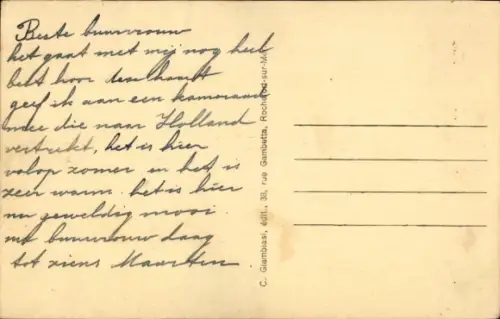 Beste buurvrouw
het gaat met mij nog heel
best hoor deze kaart
geef ik aan een kameraad
mee die naar Holland
vertrekt, het is hier
volop zomer en het is
zeer warm. het is hier
nu geweldig mooi.
nu buurvrouw daag
tot ziens Maarten.
C. Giambiasi, édit., 38, rue Gambetta, Rochefort-sur-Mer